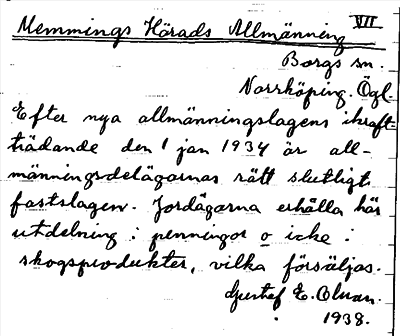 VII
Memmings Härads Allmänning
Borgs sn.
Norrköping. Ögl.
Efter nya allmänningslagens ikraft-
trädande den 1 jan 1934 är all-
männingsdelägarnas rätt slutligt
fastslagen. Jordägarna erhålla här
utdelning i penningar o icke i
skogsprodukter, vilka försäljas.
Gustaf E. Olsson.
1938.